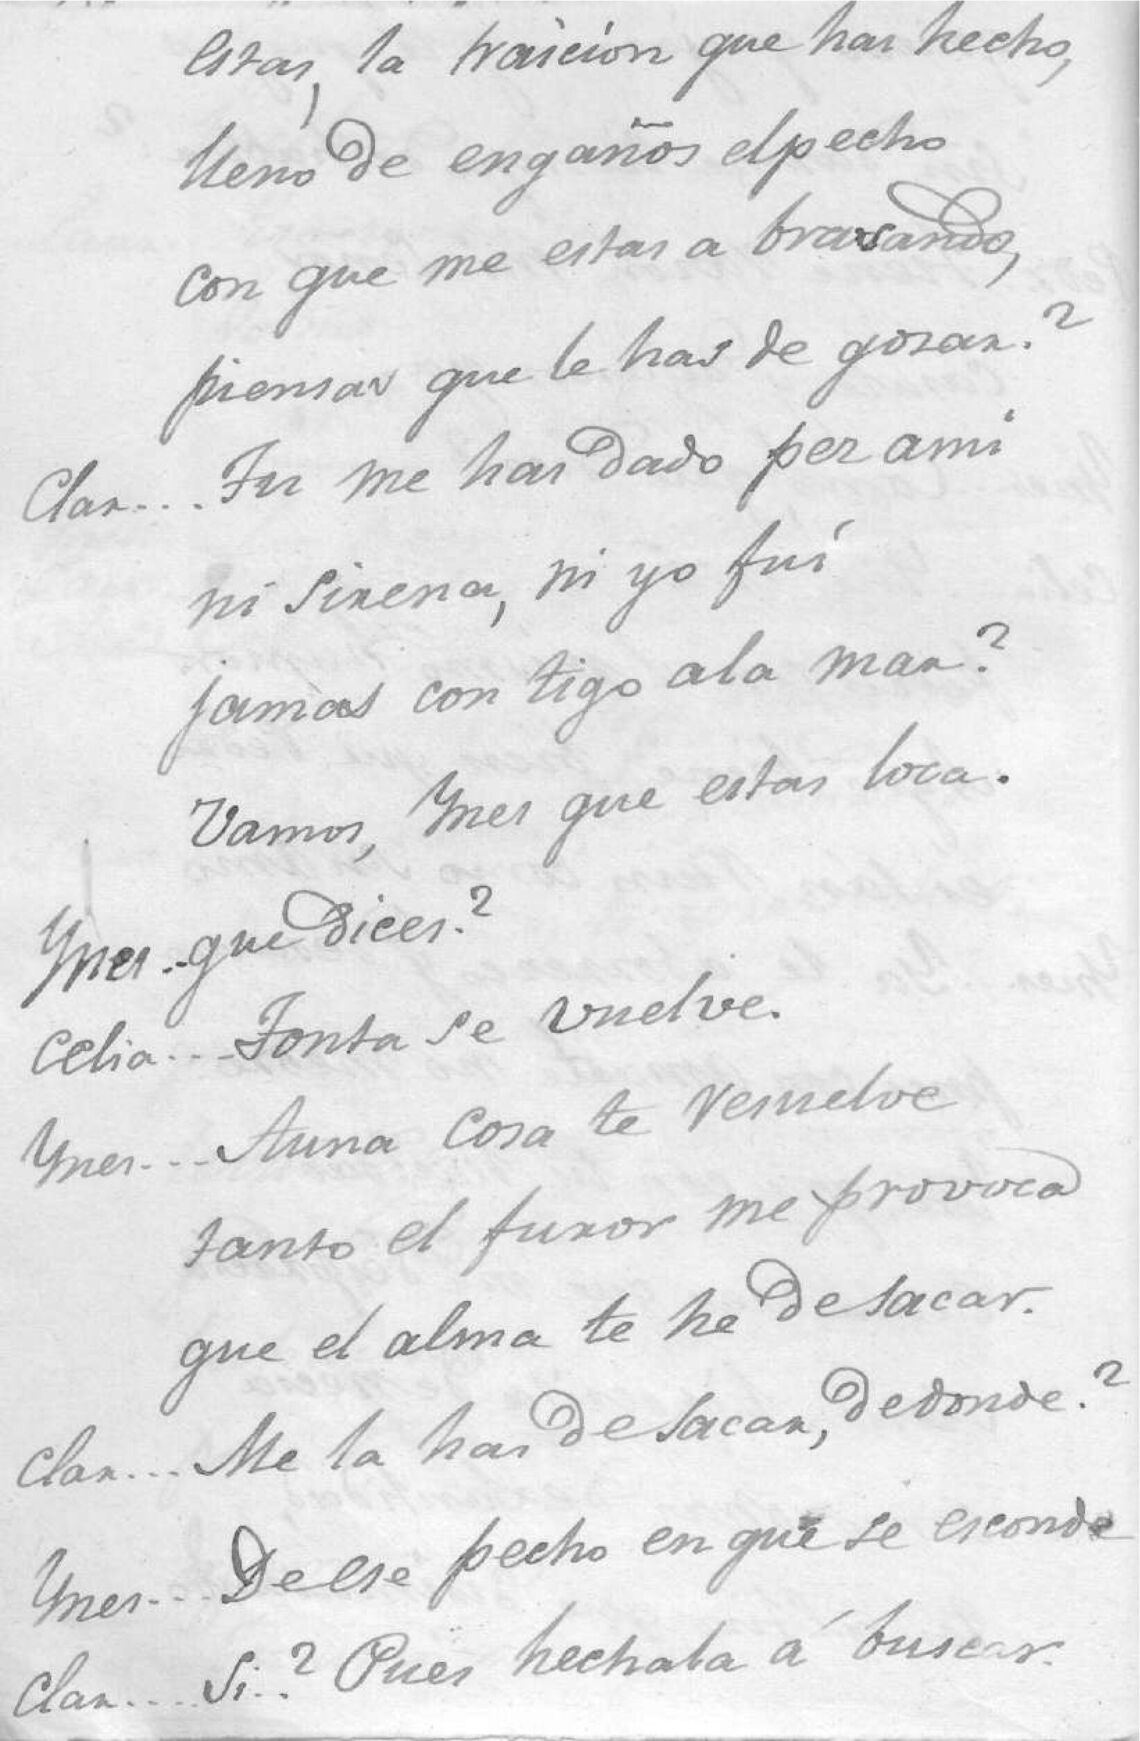 estas, la traicion que has hecho,
lleno de engaños elpecho
con que me estas a brasando,
piensas que le has de gosar.?
Clar.... Tu me has dado pez ami
ni sirena, ni yo fuí
jamas con tigo ala mar.?
Vamos, Ynes que estas loca.
Ynes.. que dices.?
Celia... Tonta se vuelve.
Ynes.... Auna cosa te resuelve
tanto el furor me provoca
que el alma te he desacar.
Clar... Me la has desacar, dedonde.?
Ynes... De ese pecho en que se esconde
Clar.... Si..? Pues hechala á buscar.